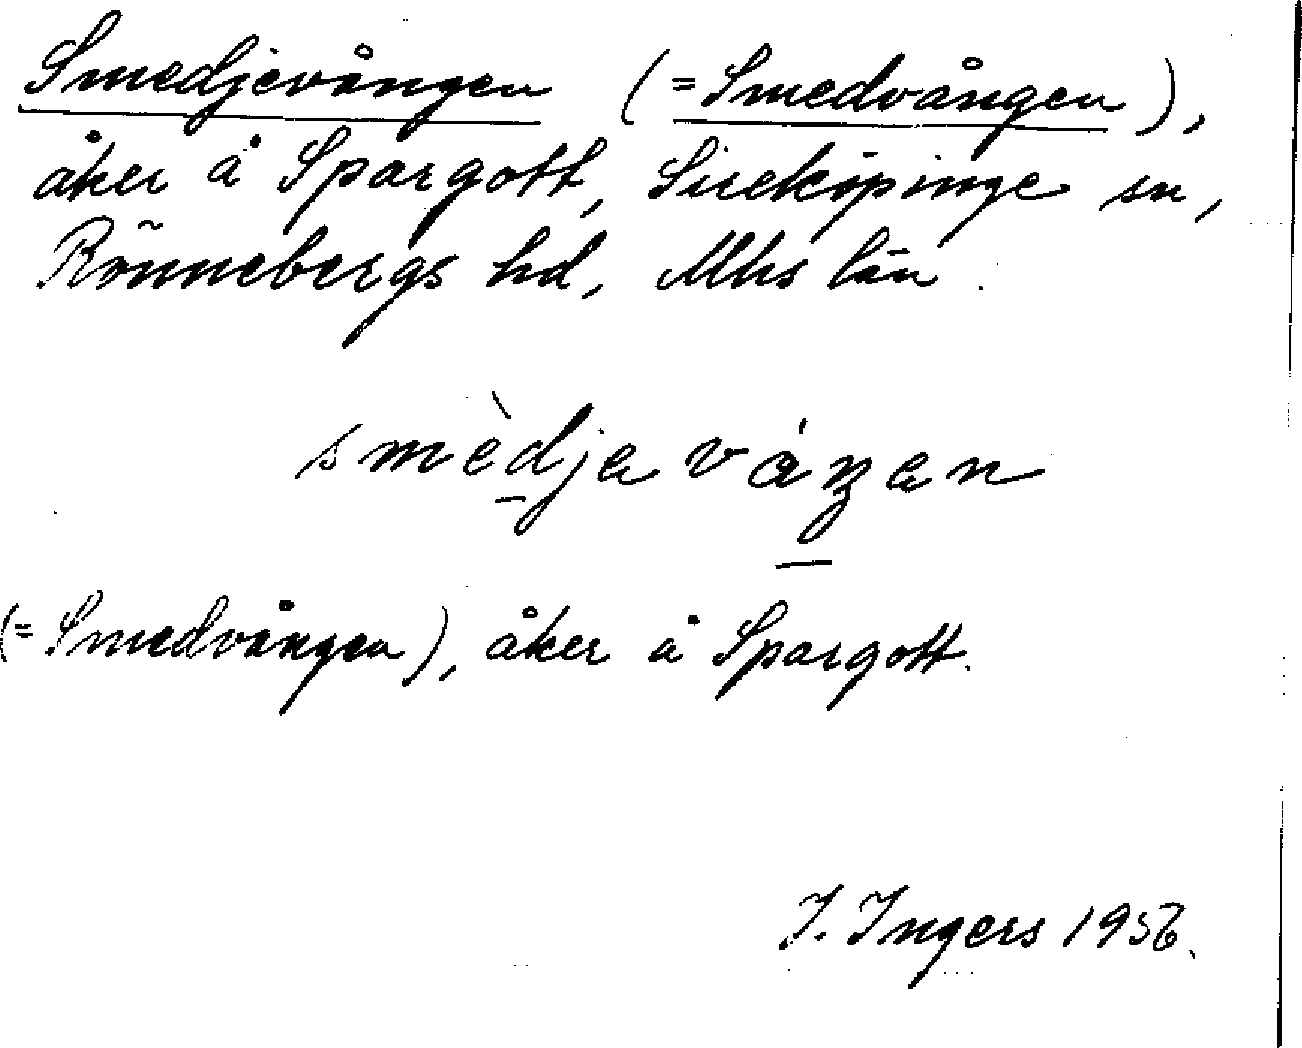 Smedjevången (= Smedvången),
åker å Spargott, Sireköpinge sn,
Rönnebergs hd, Mhs län.
smèdjaváŋan
(= Smedvången), åker å Spargott.
I. Ingers 1956.